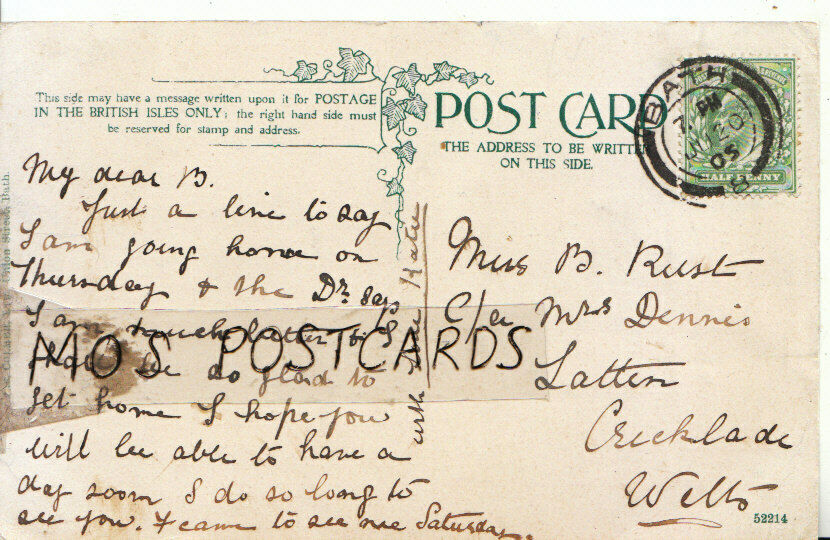 This side may have a message written upon it for POSTAGE
IN THE BRITISH ISLES ONLY; the right hand side must
be reserved for stamp and address.
POST CARD
THE ADDRESS TO BE WRITTEN
ON THIS SIDE.
BATH
PM
20
05
HALF PENNY
My dear B.
Just a line to say
I am going home on
Thursday & the Dr. says
I am much better & I
shall be so glad to
get home I hope you
will be able to have a
day soon I do so long to
see you. F came to see me Saturday.
with love Katie
Miss B. Rust
C/o Mrs Dennis
Latten
Cricklade
Wilts
MOS POSTCARDS
Union Street, Bath.
52214